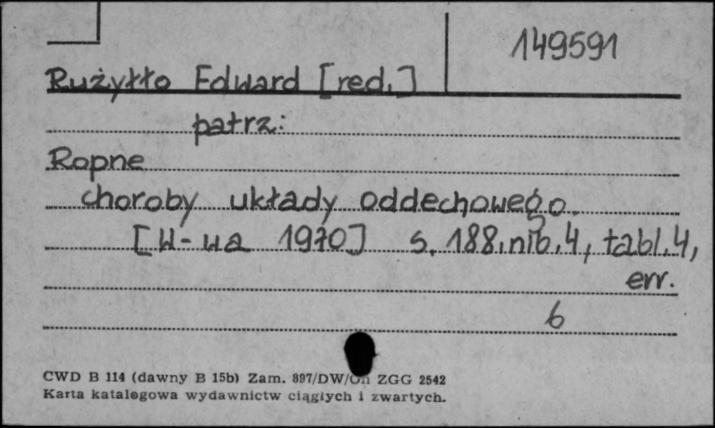 149591
Rużyłło Edward [red.]
patrz:
Ropne
choroby układy oddechowego.
[W-wa 1970] s. 188, nib. 4, tabl. 4,
err.
6
CWD B 114 (dawny B 15b) Zam. 897/DW/Oh ZGG 2542
Karta katalogowa wydawnictw ciągłych i zwartych.